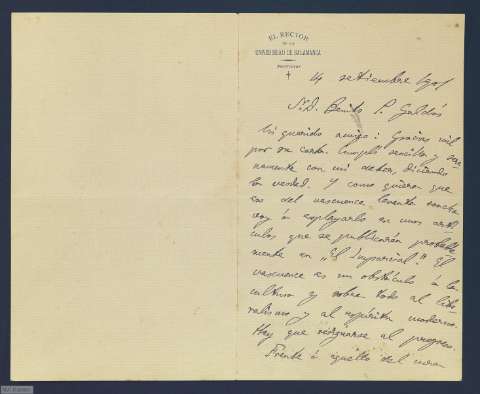 EL RECTOR
DE LA
UNIVERSIDAD DE SALAMANCA
14 setiembre 1901
Sr. D. Benito P. Galdós
Mi querido amigo: Gracias mil
por su carta. Cumplí sencilla y
namente con mi deber, diciendo
la verdad. Y como quiera que
eso del vascuence levanta roncha
voy á explayarlo en unos artí
culos que se publicarán probable
mente en "El Imparcial". El
vascuence es un obstáculo á la
cultura y sobre todo al libe
ralismo y al espíritu moderno.
Hay que resignarse al progreso.
Frente á aquello del